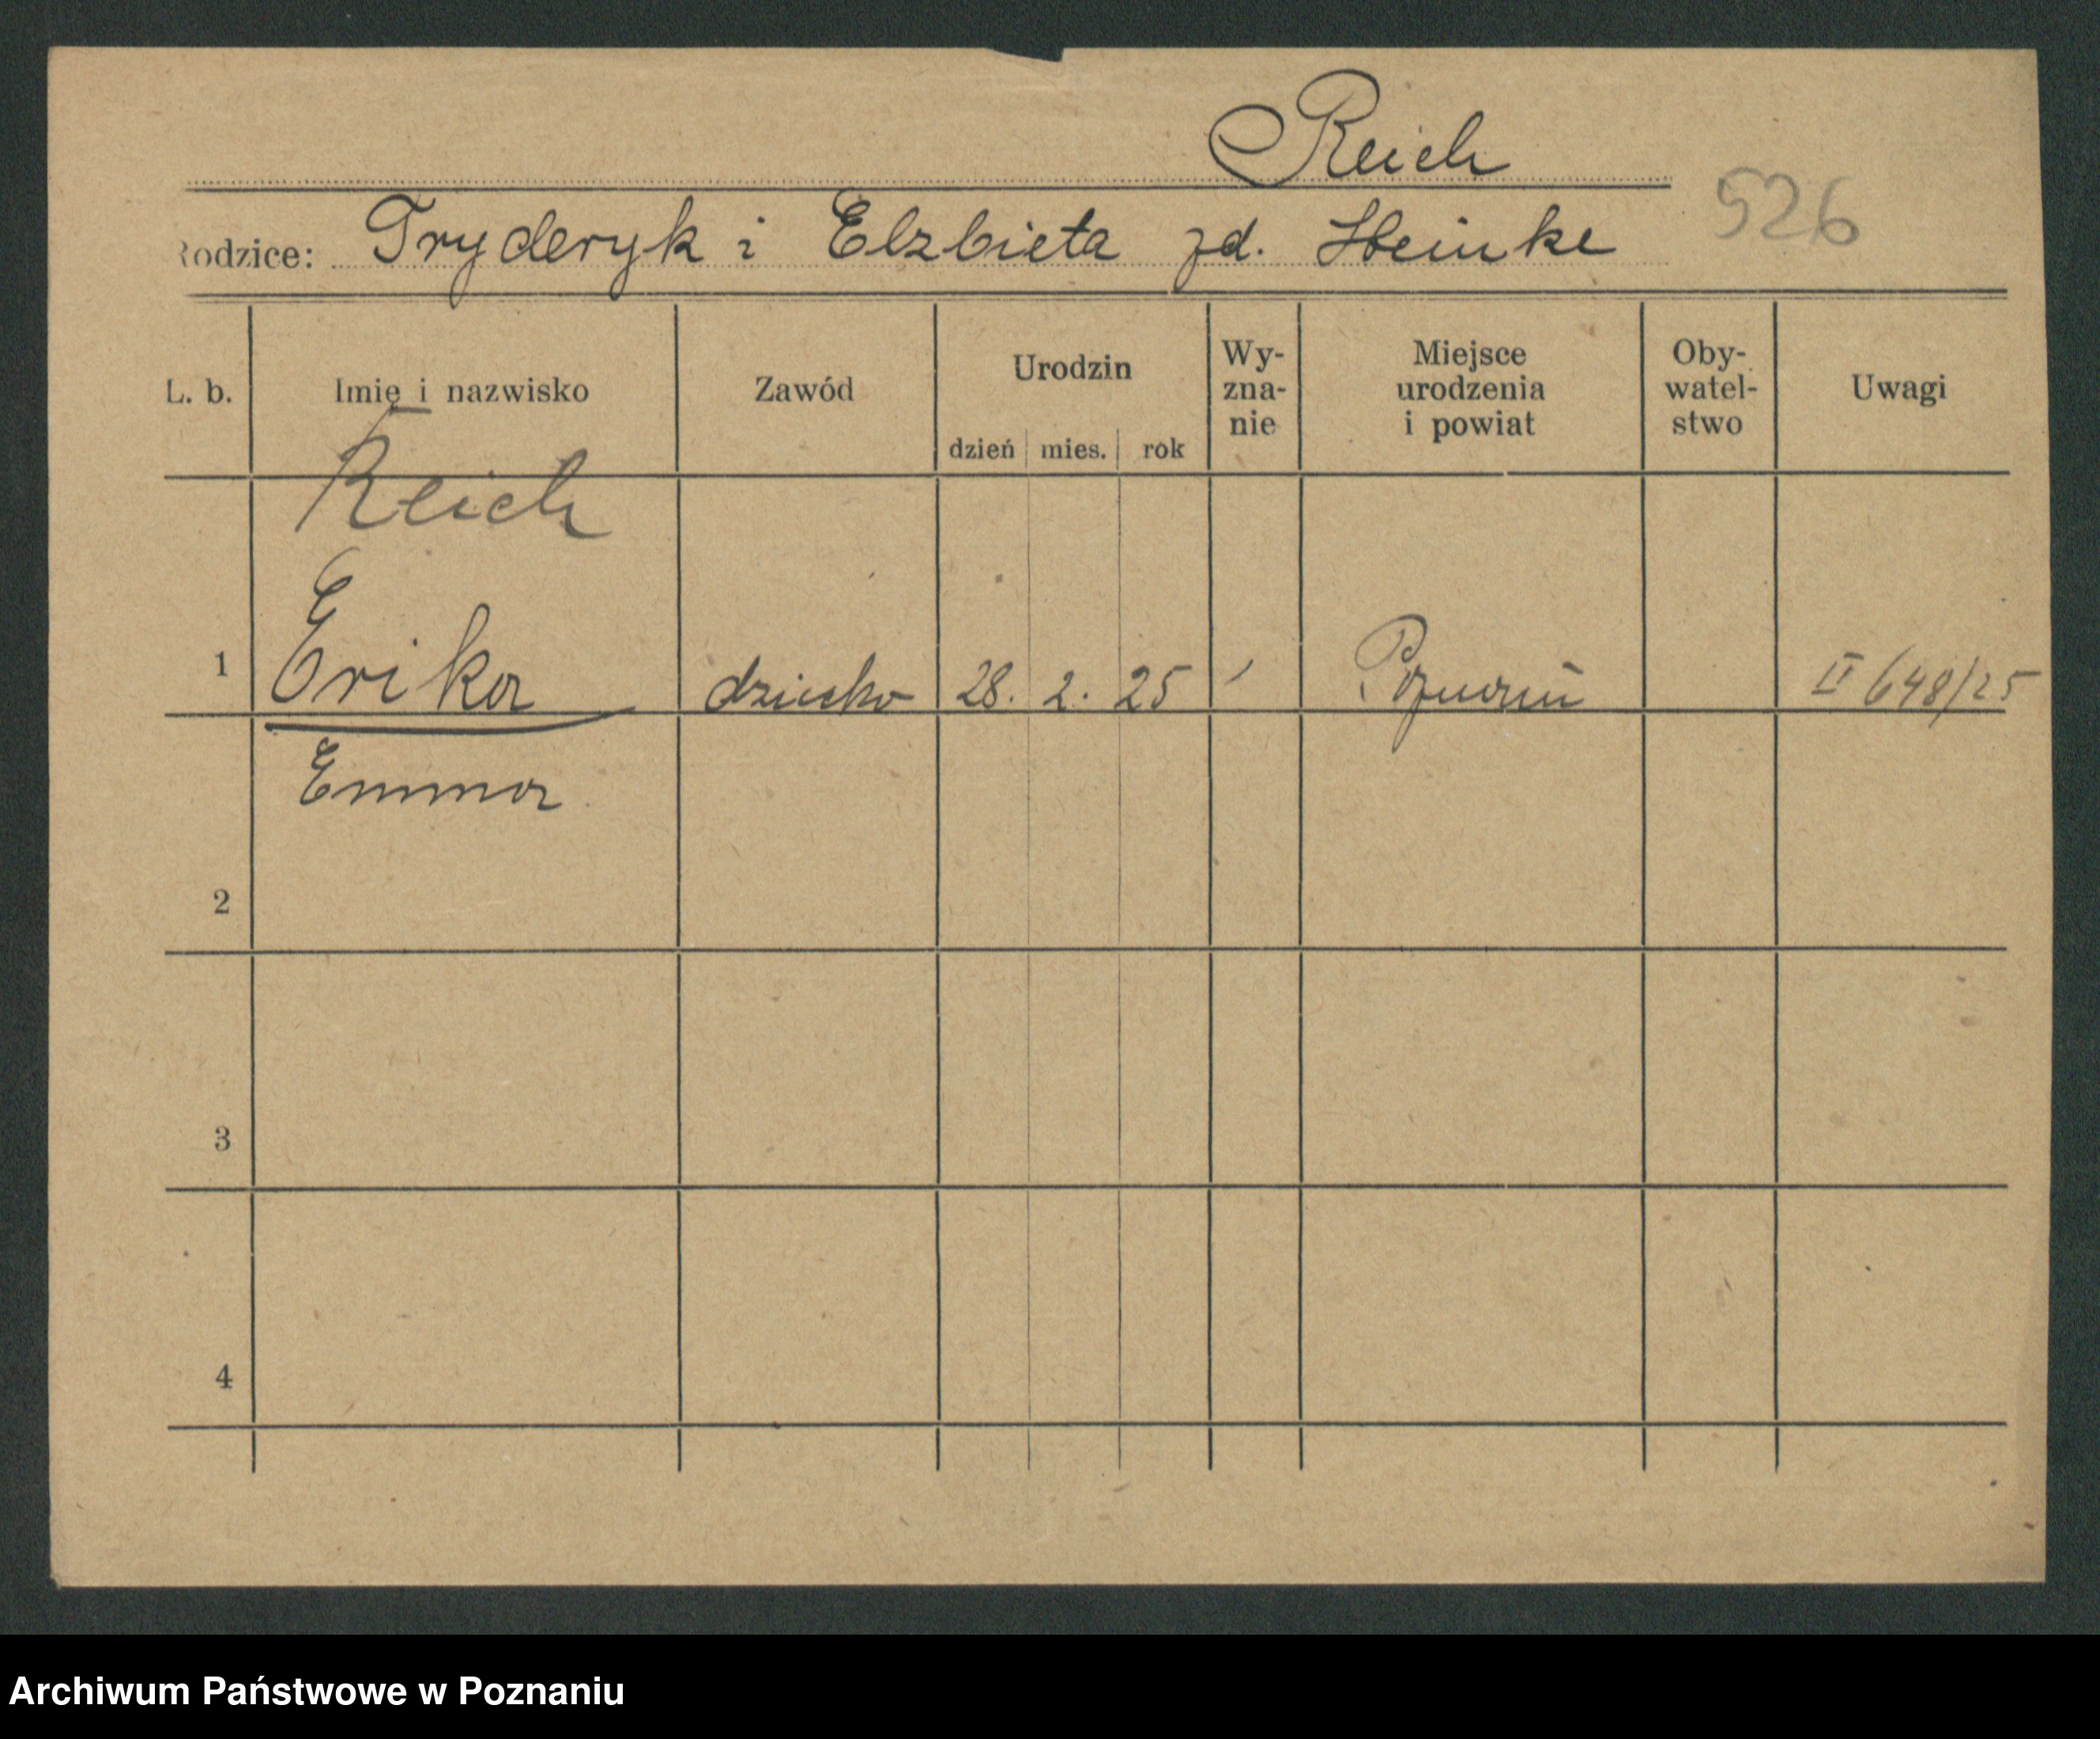 Reich
Rodzice: Fryderyk i Elzbieta zd. Heinke
526
L. b. Imię i nazwisko Zawód Urodzin dzień mies. rok Wy- zna- nie Miejsce urodzenia i powiat Oby- watel- stwo Uwagi
Reich
1 Erika dziecko 28. 2. 25 Poznań II 648/25
Emma
2
3
4
Archiwum Państwowe w Poznaniu